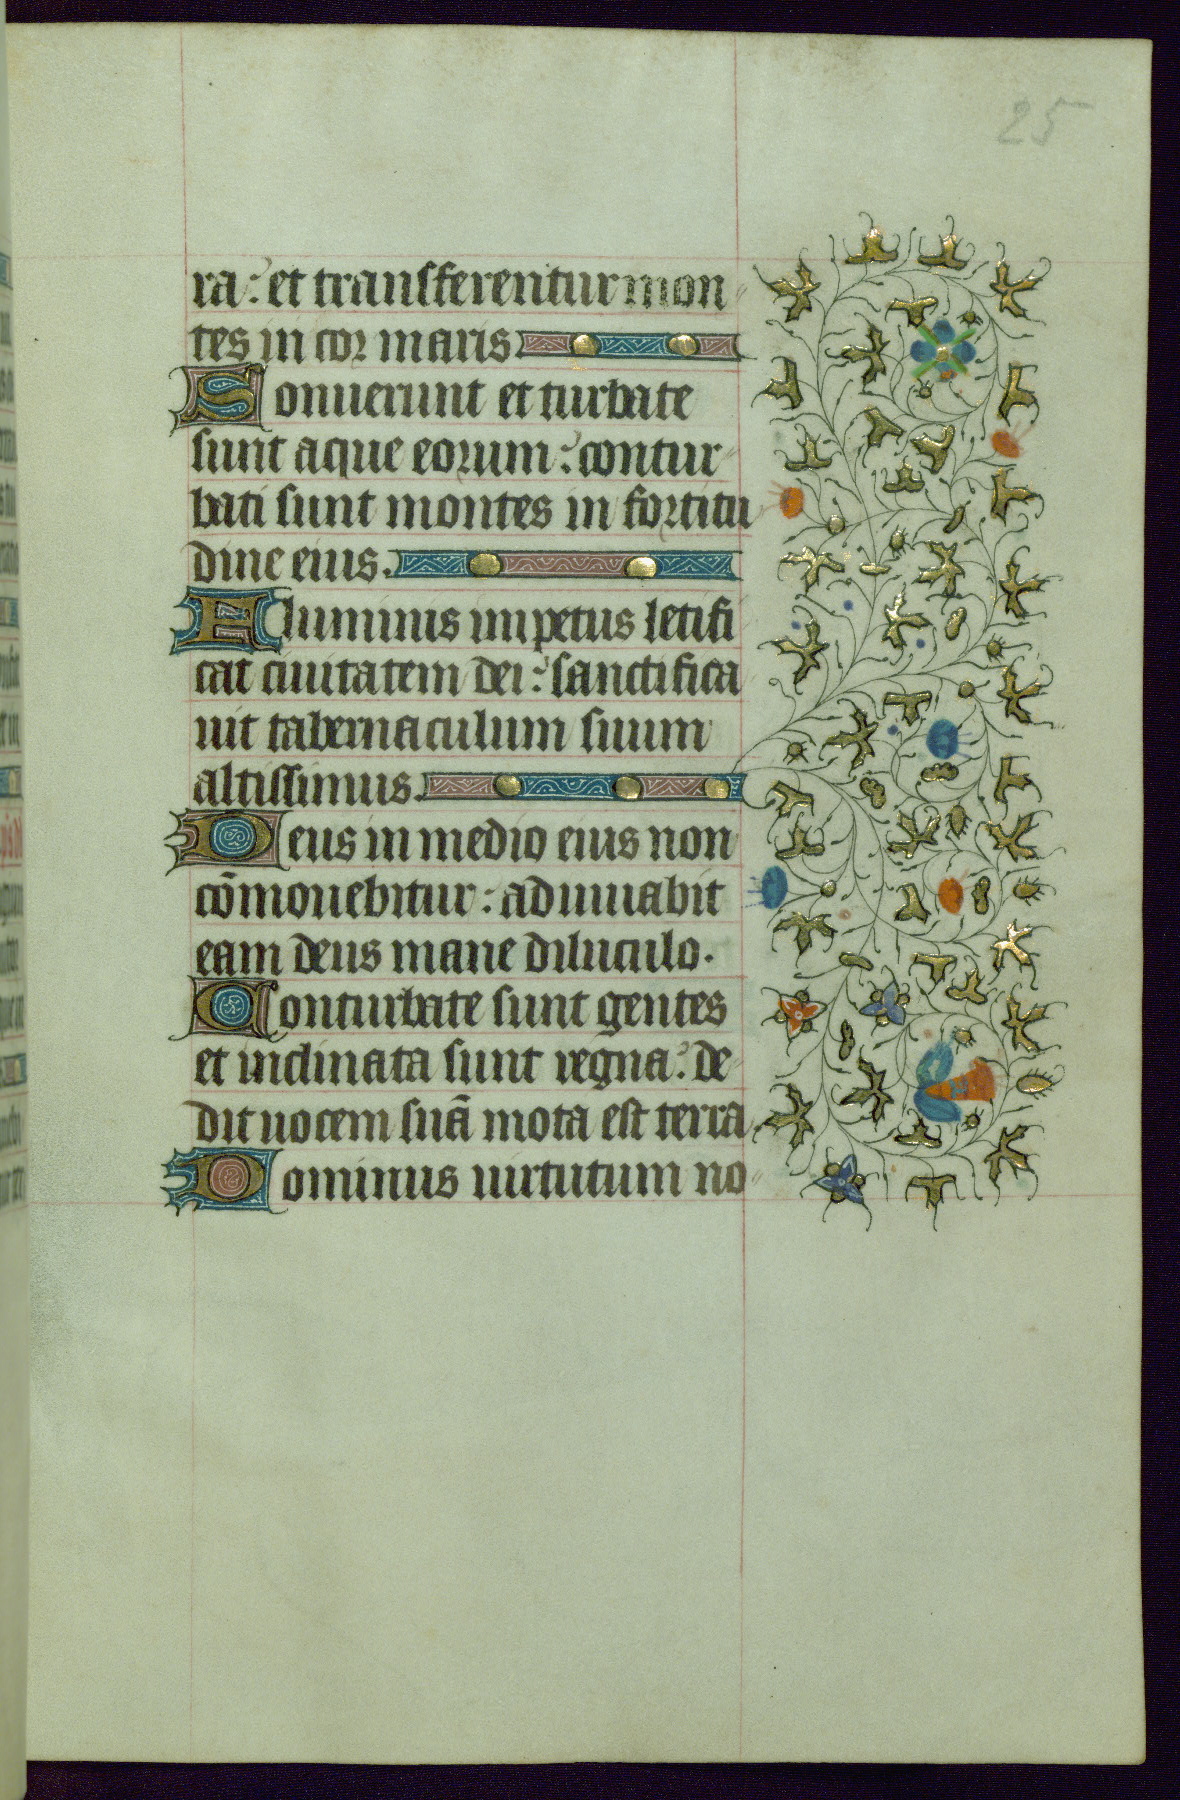 25
ra: et transferentur mon-
tes in cor maris
Sonuerunt et turbate
sunt aque eorum: contur-
bati sunt montes in fortitu
dine eius.
Fluminis impetus letifi
cat ciuitatem dei: sanctifica
uit tabernaculum suum
altissimus.
Deus in medio eius non
cōmouebitur: adiuuabit
eam deus mane diluculo.
Conturbate sunt gentes
et inclinata sunt regna: de-
dit uocem suā mota est terra.
Dominus uirtutum no-